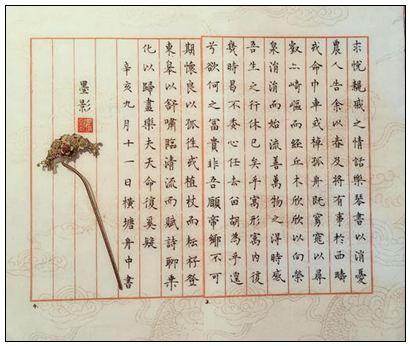 求悅親戚之情話樂琴書以消憂
農人告余以春及將有事於西疇
或命巾車或棹孤舟既窈窕以尋
壑亦崎嶇而經丘木欣欣以向榮
泉涓涓而始流善萬物之得時感
吾生之行休已矣乎寓形寓內復
幾時曷不委心任去留胡為乎遑
兮欲何之富貴非吾願帝鄉不可
期懷良辰以孤往或植杖而耘耔登
東皋以舒嘯臨清流而賦詩聊乘
化以歸盡樂夫天命復奚疑
辛亥九月十一日橫塘舟中書
墨影